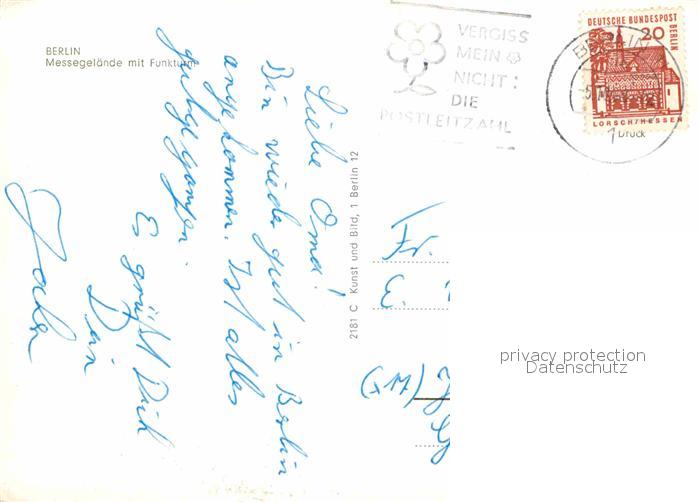 BERLIN
Messegelände mit Funkturm
Liebe Oma!
Bin wieder gut in Berlin
angekommen. Ist alles
gut gegangen.
Es grüßt Dich
Dein
2181 C Kunst und Bild, 1 Berlin 12
VERGISS
MEIN
NICHT:
DIE
POSTLEITZAHL
DEUTSCHE BUNDESPOST
BERLIN
20
LORSCH/HESSEN
BERLIN
1
Druck
Fr.
privacy protection
Datenschutz